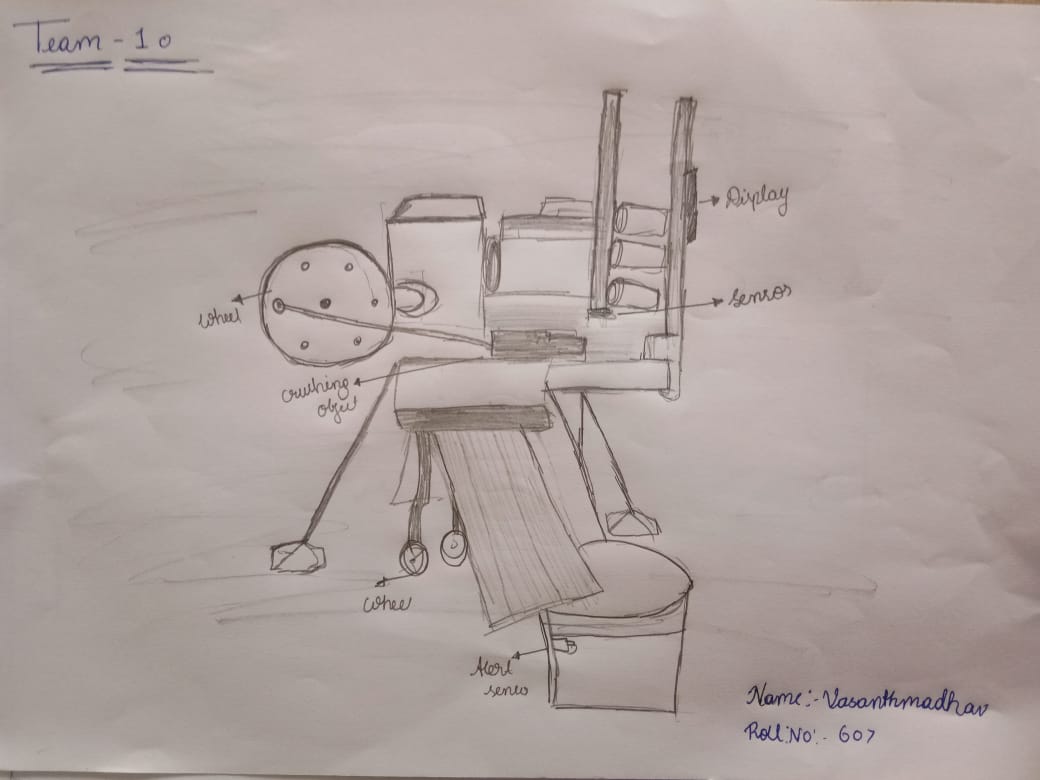 Team - 10
Display
Sensos
wheel
crushing
objet
whee
Alert
senso
Name:- Vasanthmadhav
Roll.No:- 607